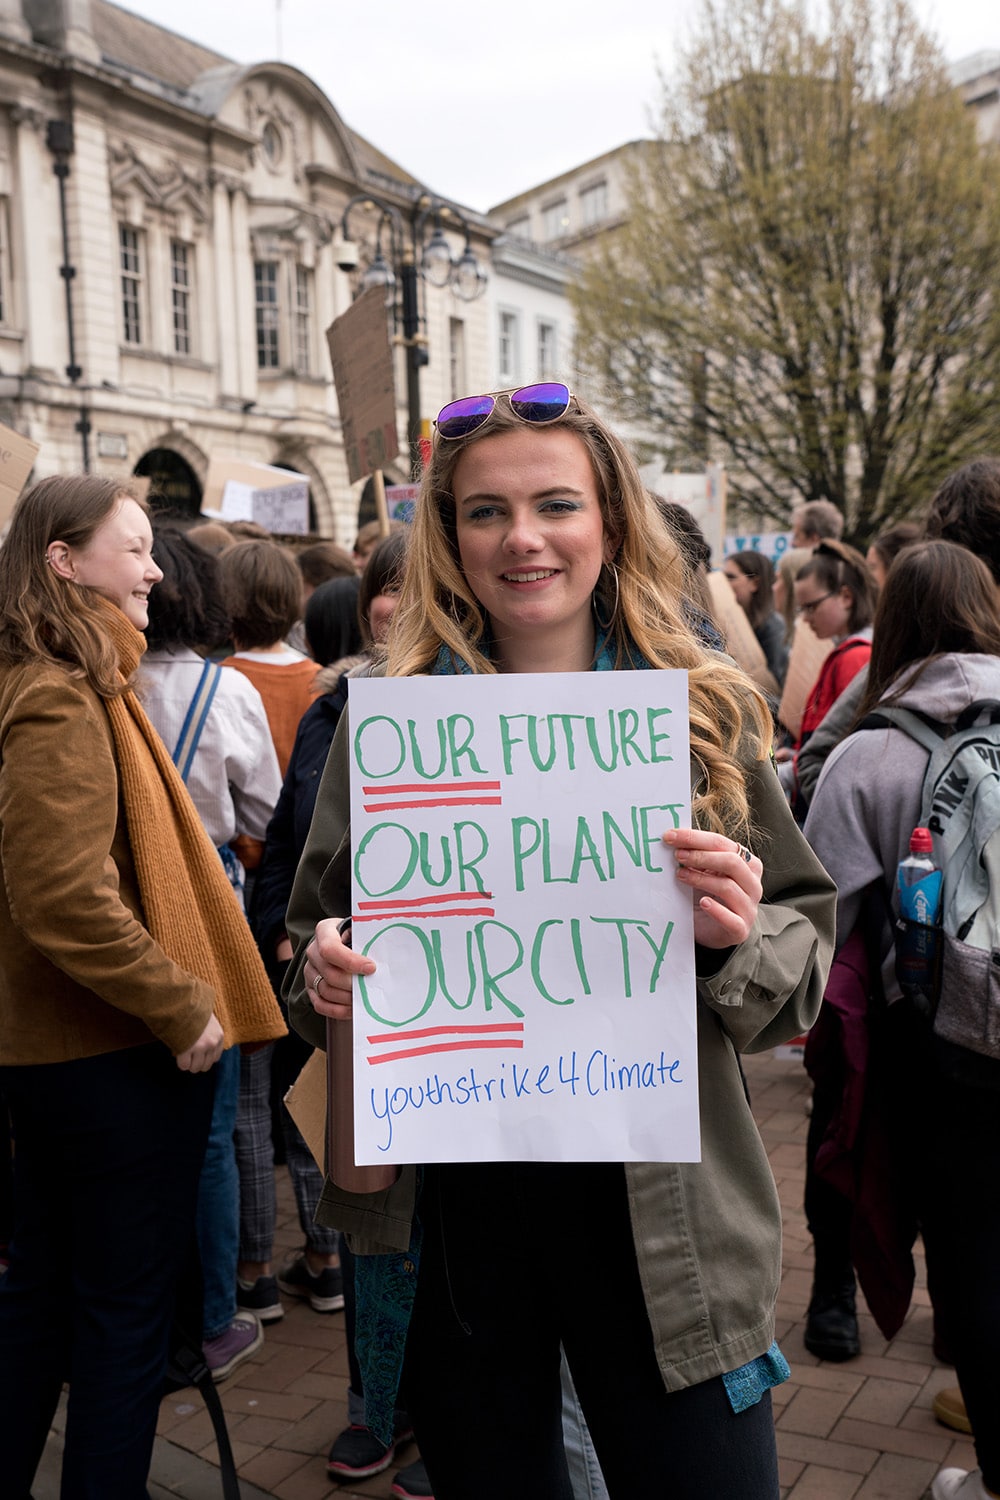 OUR FUTURE
OUR PLANET
OUR CITY
youthstrike4Climate
PINK